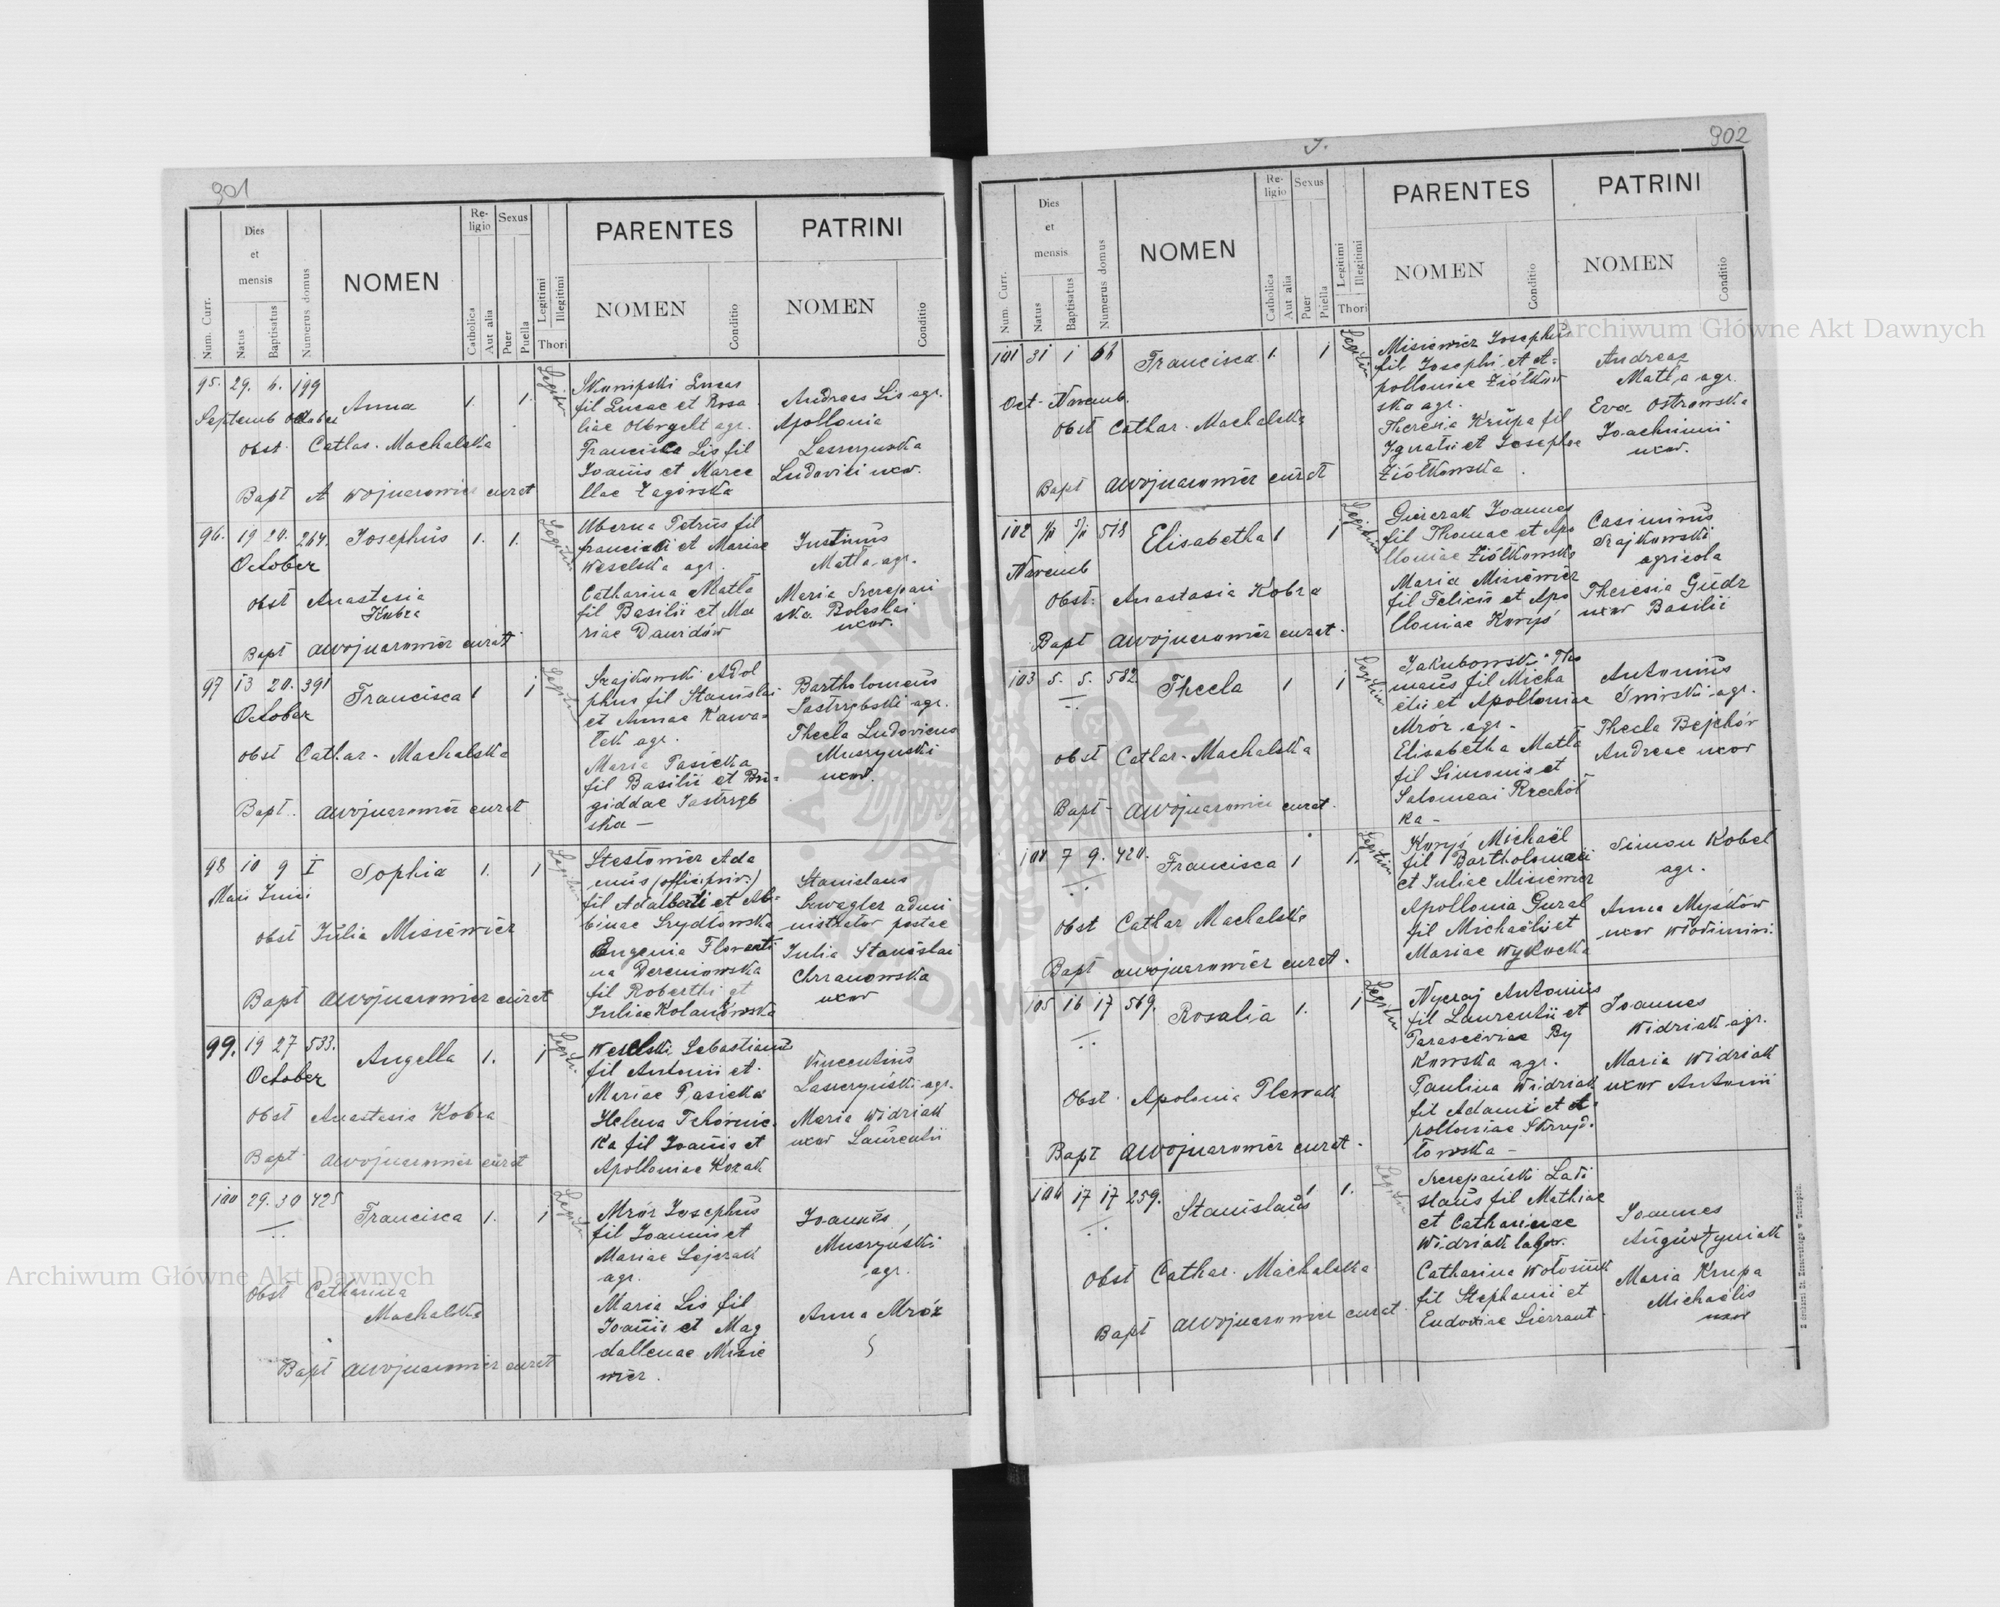 901
Num. Curr.
Dies
et
mensis
Natus
Baptisatus
Numerus domus
NOMEN
Re-
ligio
Catholica
Aut alia
Sexus
Puer
Puella
Legitimi
Illegitimi
Thori
PARENTES
NOMEN
Conditio
PATRINI
NOMEN
Conditio
95. 29. 6. 199
Septemb October
Anna 1. 1.
Obst. Cathar. Machalska
Bapt A Wojnarowicz curat
Skompski Lucas
fil Lucae et Rosa
liae Olbrycht agr.
Francisca Lis fil
Joañis et Marce
llae Zagórska
Andreas Lis agr.
Apollonia
Laszczynska
Ludovici uxor.
96. 19 20. 264. Josephus 1. 1.
October
Obst Anastasia
Kobza
Bapt AWojnarowicz curat
Uberna Petrus fil
francisci et Mariae
Weselska agr.
Catharina Matła
fil Basilii et Ma
riae Dawidów
Justinus
Matła agr.
Maria Szczepań
ska Boleslai
uxor.
97 13 20. 391 Francisca 1 1
October
obst Cathar. Machalska
Bapt. AWojnarowicz curat
Szajkowski Adol
phus fil Stanislai
et Annae Kawa-
łek agr.
Maria Pasieka
fil Basilii et Bri-
giddae Jastrzęb
ska —
Bartholomeus
Jastrzębski agr.
Thecla Ludovicus
Muszyński
uxor
98 10 9 I Sophia 1. 1
Maii Junii
obst Julia Misiewicz
Bapt AWojnarowicz curat
Ada
mus (offic. priv.)
fil Adalberti et Al-
binae Szydłowska
Eugenia Florenti
na Dereniowska
fil Roberthi et
Juliae Kolankowska
Stanislaus
Szwagler admi
nistrator postae
Julia Stanislai
Chrzanowska
uxor
99. 19 27 533. Angella 1. 1
October
Obst Anastasia Kobza
Bapt AWojnarowicz curat
Weselski Sebastianus
fil Antonii et
Mariae Pasieka
Helena Tchórnic-
ka fil Joañis et
Apolloniae Kozak
Vincentius
Laszczyński agr.
Maria Widziak
uxor Laurentii
100 29. 30 425 Francisca 1. 1
Obst Catharina
Machalska
Bapt AWojnarowicz curat
Mróz Josephus
fil Joannis et
Mariae Lejczak
agr.
Maria Lis fil
Joañis et Mag
dallenae Misie
wicz.
Joannes
Muszyński
agr.
Anna Mróz
902
Num. Curr.
Dies
et
mensis
Natus
Baptisatus
Numerus domus
NOMEN
Re-
ligio
Catholica
Aut alia
Sexus
Puer
Puella
Legitimi
Illegitimi
Thori
PARENTES
NOMEN
Conditio
PATRINI
NOMEN
Conditio
101 31 1 66 Francisca 1. 1
Oct - Novemb.
Obst Cathar. Machalska
Bapt AWojnarowicz curat
Misiewicz Josephus
fil Josephi et A-
polloniae Ziółkow
ska agr.
Theresia Krupa fil
Ignatii et Josepha
Ziółkowska.
Andreas
Matła agr.
Eva Ostrowska
Joachimii
uxor.
102 513 Elisabetha 1 1
Novemb
Obst: Anastasia Kobza
Bapt AWojnarowicz curat.
Joannes
fil Thomae et Apo
lloniae Ziółkowska
Maria Misiewicz
fil Felicis et Apo
lloniae Koryś
Casimirus
Szajkowski
agricola
Theresia Gudz
uxor Basilii
103 5. 5. 532. Thecla 1 1
obst Cathar. Machalska
Bapt AWojnarowicz curat.
Jakubowski Tho
maus fil Micha
elis et Apolloniae
Mróz agr.
Elisabetha Matła
fil Simonis et
Salomeai Rzechót
ka -
Antonius
Śnirski agr.
Thecla Bejchór
Andreae uxor
104 7 9. 420. Francisca 1 1.
obst Cathar Machalska
Bapt AWojnarowicz curat.
Koryś Michaël
fil Bartholomaei
et Juliae Misiewicz
Apollonia Gural
fil Michaëlis et
Mariae Wykocka
Simon Kobel
agr.
Anna Myśków
uxor Włodimiri
105 16 17 569. Rosalia 1. 1
Obst Apolonia Plewak
Bapt AWojnarowicz curat.
Nyczaj Antonius
fil Laurentii et
Parasceviae By
kowska agr.
Paulina Widziak
fil Adami et A-
polloniae Skrzyd-
łowska —
Joannes
Widziak agr.
Maria Widziak
uxor Antonii
106 17 17 259. Stanislaus 1 1.
Obst Cathar. Machalska
Bapt AWojnarowicz curat.
Szczepański Ladi
slaus fil Mathiae
et Catharinae
Widziak labor.
Catharina Wołosiuk
fil Stephani et
Eudoxiae Sierzant.
Joannes
Augustyniak
Maria Krupa
Michaëlis
uxor
Archiwum Główne Akt Dawnych
Archiwum Główne Akt Dawnych